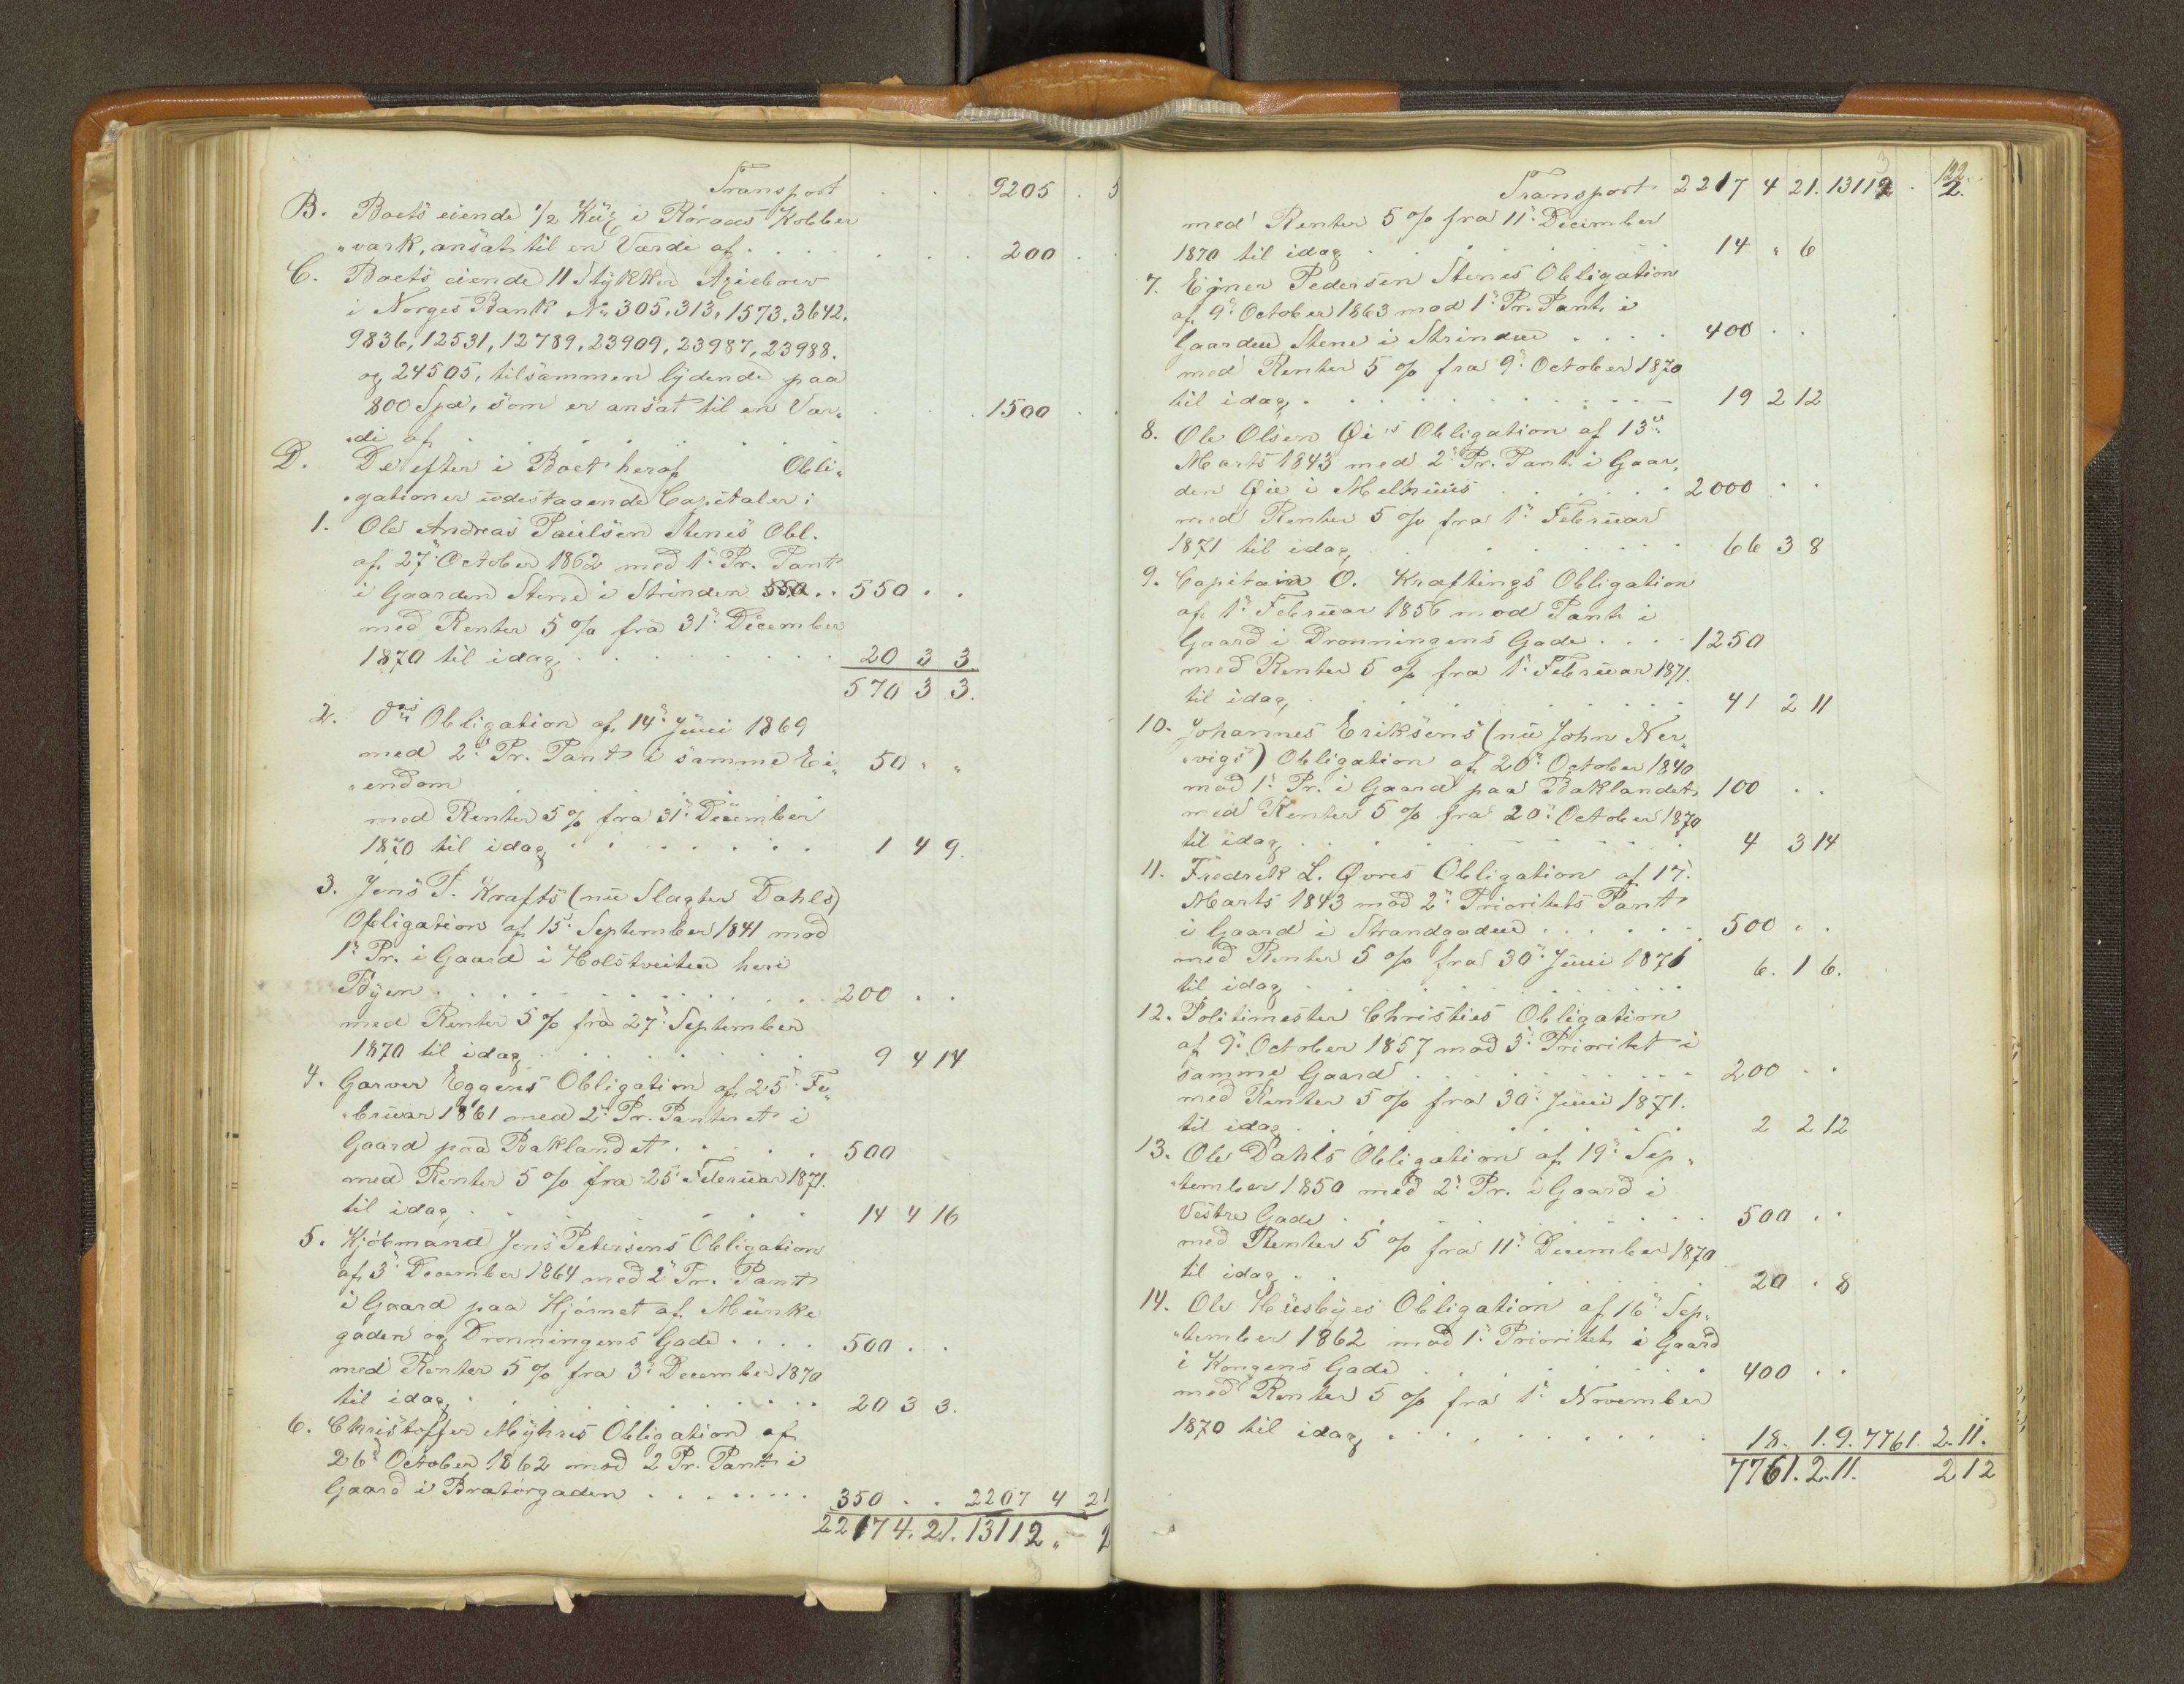 Transport . . . 9205 . 5
B. Boets eiende 1/2 Kux i Röraas Kobber
„værk, ansat til en Værdi af . . . . . . . 200 . .
C. Boets eiende 11 Stykker Axiebrev
i Norges Bank No 305, 313, 1573, 3642,
9836, 12531, 12789, 23909, 23987, 23988.
og 24505, tilsammen lydende paa
800 Spd, som er ansat til en Vær„ . . . 1500 . .
„di af . . . . . . .
D. De efter i Boet heraf Obli„
„gationer udestaaende Capitaler:
1. Ole Andreas Paulsen Stenes Obl.
af 27. October 1862 med 1. Pr. Pant
i Gaarden Stene i Strinden 550 . . 550 . .
med Renter 5 % fra 31. December
1870 til idag . . . . . . . 20 3 3
570 3 3.
2. Obligation af 14. Juni 1869
med 2. Pr. Pant i samme Ei„ 50 „ „
„endom . . . .
med Renter 5 % fra 31. December
1870 til idag . . . . . . . 1 4 9.
3. Jens P. Krafts (nu Slagter Dahls)
Obligation af 15. September 1841 mod
1. Pr. i Gaard i Holstveiten heri
Byen . . . . . . . . . . 200 . .
med Renter 5 % fra 27. September
1870 til idag . . . . . . . 9 4 14
4. Garver Eggens Obligation af 25. Fe„
„bruar 1861 med 2. Pr. Panteret i
Gaard paa Baklandet . . . . . 500
med Renter 5 % fra 25. Februar 1871.
til idag . . . . . . . 14 4 16
5. Kjöbmand Jens Petersens Obligation
af 3. December 1864 med 2. Pr. Pant
i Gaard paa Hjörnet af Munke
gaden og Dronningens Gade . . . . 500 . .
med Renter 5 % fra 3. December 1870
til idag . . . . . . . . 20 3 3.
6. Christoffer Myhres Obligation af
26. October 1862 mod 2 Pr. Pant i
Gaard i Bratörgaden . . . . . . . . 350 . . 2207 4 21
2217 4. 21. 13112 „ 2
122.
Transport 2217 4 21. 13112 . 2.
med Renter 5 % fra 11. December
1870 til idag . . . . . . . 14 „ 6
7. Ejner Pedersen Stenes Obligation
af 9. October 1863 mod 1. Pr. Pant i
Gaarden Stene i Strinden . . . . 400 . .
med Renter 5 % fra 9. October 1870
til idag . . . . . . . . . . . 19 2 12
8. Ole Olsen Öie's Obligation af 13.
Marts 1843 med 2. Pr. Pant i Gaar„
den Öie i Melhuus . . . . . . . 2000 . .
med Renter 5 % fra 1. Februar
1871 til idag . . . . . . . 66 3 8
9. Capitain O. Kraftings Obligation
af 1. Februar 1856 mod Pant i
Gaard i Dronningens Gade . . . . 1250
med Renter 5 % fra 1. Februar 1871.
til idag . . . . . . . . . 41 2 11
10. Johannes Eriksens (nu John Ner„
„vigs) Obligation af 20. October 1840
mod 1. Pr. i Gaard paa Baklandet, 100 . .
med Renter 5 % fra 20. October 1870
til idag . . . . . . . . . 4 3 14
11. Fredrik L. Övres Obligation af 17.
Marts 1843 mod 2. Prioritets Pant
i Gaard i Strandgaden . . . . . . 500 . .
med Renter 5 % fra 30. Juni 1871 6. 1 6.
til idag . . . . . . . . . . .
12. Politimester Christies Obligation
af 9. October 1857 mod 3. Prioritet i
samme Gaard . . . . . . . . . 200 . .
med Renter 5 % fra 30. Juni 1871.
til idag . . . . . . . 2 2 12
13. Ole Dahls Obligation af 19. Sep„
„tember 1850 med 2. Pr. i Gaard i
Vestre Gade . . . . . . . . . 500 . .
med Renter 5 % fra 11. December 1870
til idag . . . . . . . . 20 . 8
14. Ole Husbyes Obligation af 16. Sep„
„tember 1862 mod 1. Prioritet i Gaard
i Kongens Gade . . . . . . . 400 . .
med Renter 5 % fra 1. November
1870 til idag . . . . . . . . . 18. 1. 9. 7761. 2. 11.
7761. 2. 11. 2 12